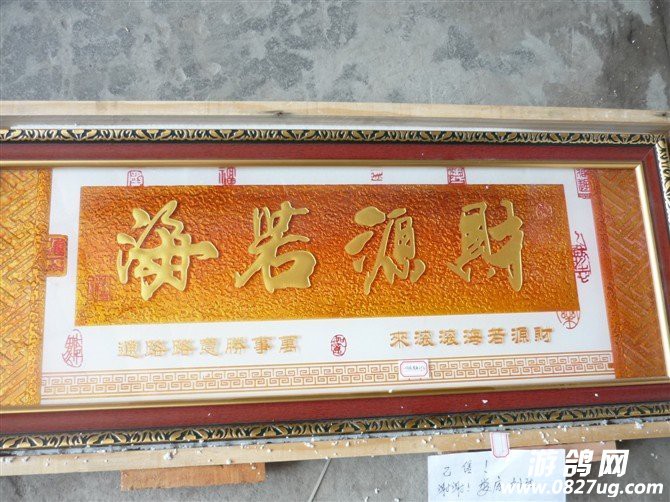 財源若海
財源若海滾滾來
萬事勝意路路通
已售！
谢谢！
游鸽网
www.0827ug.com